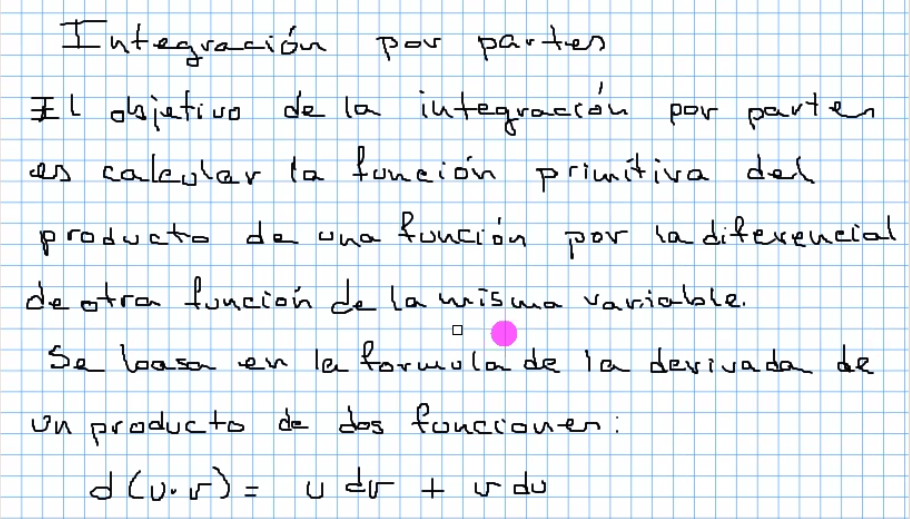 Integración por partes
El objetivo de la integración por partes
es calcular la función primitiva del
producto de una función por la diferencial
de otra función de la misma variable.
Se basa en la formula de la derivada de
un producto de dos funciones:
d(u·v) = u dv + v du